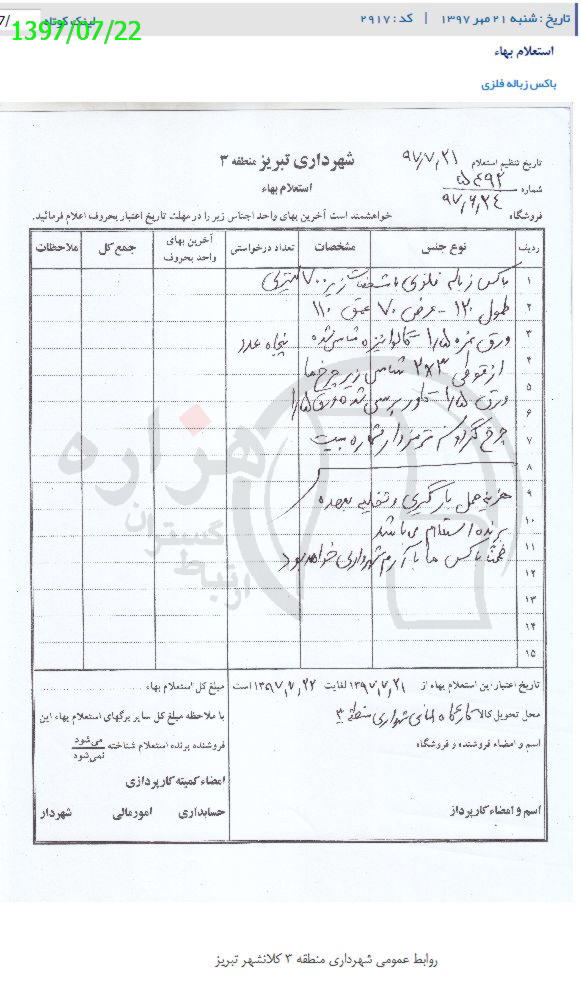 تاریخ : شنبه ۲۱ مهر ۱۳۹۷ | کد : ۲۹۱۷
لینک کوتاه
1397/07/22
استعلام بهاء
باکس زباله فلزی
شهرداری تبریز منطقه ۳
استعلام بهاء
تاریخ تنظیم استعلام ۹۷٫۷٫۲۱
شماره ۵۴۹۲
۹۷٫۶٫۲۴
فروشگاه
خواهشمند است آخرین بهای واحد اجناس زیر را در مهلت تاریخ اعتبار بحروف اعلام فرمائید.
ردیف نوع جنس مشخصات تعداد درخواستی آخرین بهای واحد بحروف جمع کل ملاحظات
۱ باکس زباله فلزی با مشخصات زیر ۷۰۰ لیتری
۲ طول ۱۲۰ - عرض ۷۰ عمق ۱۱۰
۳ ورق نمره ۱/۵ گالوانیزه شاسی شده پنجاه عدد
۴ از قوطی ۲×۳ شاسی زیر چرخ‌ها
۵ ورق ۱/۵ - پرسی شده ورق ۱/۵
۶
۷ چرخ گردان ترمزدار شماره بیست
۸
۹ هزینه حمل بارگیری و تخلیه بعهده
۱۰ برنده استعلام می‌باشد
۱۱ ضمناً باکس ها با آرم شهرداری خواهد بود
۱۲
۱۳
۱۴
۱۵
هزاره
گستران
ارتباط
تاریخ اعتبار این استعلام بهاء از ۱۳۹۷٫۷٫۲۱ لغایت ۱۳۹۷٫۷٫۲۲ است
محل تحویل کالا کارگاه امانی شهرداری منطقه ۳
اسم و امضاء فروشنده و فروشگاه
اسم و امضاء کارپرداز
مبلغ کل استعلام بهاء
با ملاحظه مبلغ کل سایر برگهای استعلام بهاء این
فروشنده برنده استعلام شناخته می‌شود
نمی‌شود
امضاء کمیته کارپردازی
حسابداری امورمالی شهردار
روابط عمومی شهرداری منطقه ۳ کلانشهر تبریز